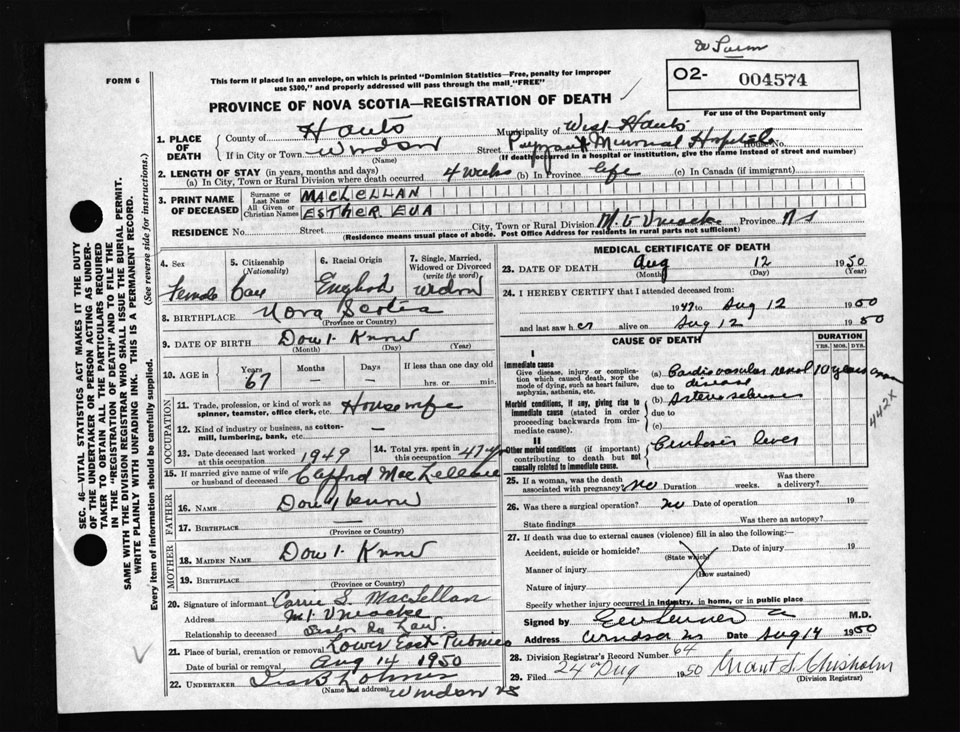 FORM 6
This form if placed in an envelope, on which is printed "Dominion Statistics—Free, penalty for improper
use $300," and properly addressed will pass through the mail "FREE"
PROVINCE OF NOVA SCOTIA—REGISTRATION OF DEATH
O2- 004574
For use of the Department only
SEC. 46—VITAL STATISTICS ACT MAKES IT THE DUTY
OF THE UNDERTAKER OR PERSON ACTING AS UNDER-
TAKER TO OBTAIN ALL THE PARTICULARS REQUIRED
IN THE "REGISTRATION OF DEATH" AND TO FILE THE
SAME WITH THE DIVISION REGISTRAR WHO SHALL ISSUE THE BURIAL PERMIT.
WRITE PLAINLY WITH UNFADING INK. THIS IS A PERMANENT RECORD.
Every item of information should be carefully supplied. (See reverse side for instructions.)
1. PLACE OF DEATH
County of Hants Municipality of West Hants
If in City or Town Windsor Street Payzant Memorial Hospital House No.
(Name) (If death occurred in a hospital or institution, give the name instead of street and number)
2. LENGTH OF STAY (in years, months and days)
(a) In City, Town or Rural Division where death occurred 4 weeks (b) In Province life (c) In Canada (if immigrant)
3. PRINT NAME OF DECEASED
Surname or Last Name MACLELLAN
All Given or Christian Names ESTHER EVA
RESIDENCE No. Street City, Town or Rural Division Mt Uniacke Province NS
(Residence means usual place of abode. Post Office Address for residents in rural parts not sufficient)
4. Sex Female
5. Citizenship (Nationality) Can
6. Racial Origin English
7. Single, Married, Widowed or Divorced (write the word) widow
8. BIRTHPLACE Nova Scotia
(Province or Country)
9. DATE OF BIRTH Don't Know
(Month) (Day) (Year)
10. AGE in Years 67 Months — Days — If less than one day old hrs. or min.
OCCUPATION
11. Trade, profession, or kind of work as spinner, teamster, office clerk, etc. Housewife
12. Kind of industry or business, as cotton-mill, lumbering, bank, etc. —
13. Date deceased last worked at this occupation 1949
14. Total yrs. spent in this occupation 47 yrs
15. If married give name of wife or husband of deceased Clifford MacLellan
FATHER
16. Name Don't know
17. Birthplace —
(Province or Country)
MOTHER
18. Maiden Name Don't Know
19. Birthplace
(Province or Country)
20. Signature of informant Carrie S. MacLellan
Address Mt Uniacke
Relationship to deceased Sister in Law.
21. Place of burial, cremation or removal Lower East Pubnico
Date of burial or removal Aug 14 1950
22. Undertaker Windsor NS
(Name and address)
MEDICAL CERTIFICATE OF DEATH
23. DATE OF DEATH Aug 12 1950
(Month) (Day) (Year)
24. I HEREBY CERTIFY that I attended deceased from
1947 to Aug 12 1950
and last saw her alive on Aug 12 1950
CAUSE OF DEATH
DURATION
YRS. MOS. DYS.
I
Immediate cause
Give disease, injury or complication which caused death, NOT the mode of dying, such as heart failure, asphyxia, asthenia, etc.
(a) Cardio vascular renal disease 10 years
due to
Morbid conditions, if any, giving rise to immediate cause (stated in order proceeding backwards from immediate cause).
(b) Arteriosclerosis
due to
(c)
442X
II
Other morbid conditions (if important) contributing to death but not causally related to immediate cause.
Cirrhosis liver
25. If a woman, was the death associated with pregnancy? no Duration weeks. Was there a delivery?
26. Was there a surgical operation? no Date of operation 19
State findings Was there an autopsy?
27. If death was due to external causes (violence) fill in also the following:—
Accident, suicide or homicide? Date of injury 19
(State which)
Manner of injury
(How sustained)
Nature of injury
Specify whether injury occurred in industry, in home, or in public place
Signed by M.D.
Address Windsor NS Date Aug 14 1950
28. Division Registrar's Record Number 64
29. Filed 24th Aug 1950 Grant S. Chisholm
(Division Registrar)